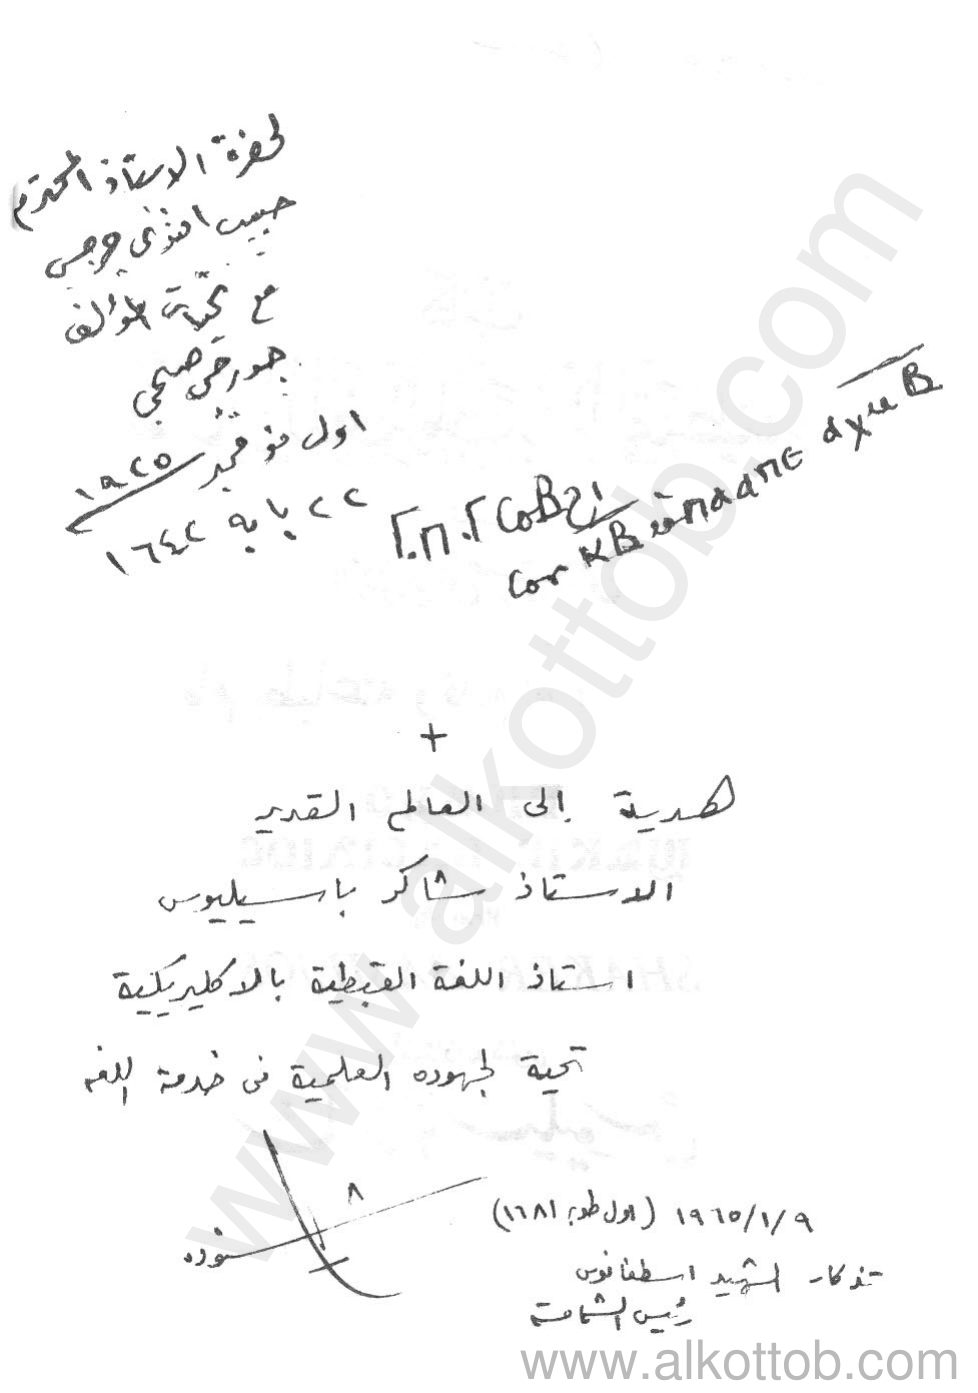 لحضرة الاستاذ المحترم
حبيب افندى جرجس
مع تحيات المؤلف
جورجى صبحي
اول نوفمبر ١٩٢٥
٢٢ بابه ١٦٤٢
+
هدية إلى العالم القدير
الاستاذ شاكر باسيليوس
استاذ اللغة القبطية بالاكليريكية
تحية لجهوده العلمية فى خدمة اللغه
شنوده
١٩٦٥/١/٩ (اول طوبه ١٦٨١)
تذكار الشهيد اسطفانوس
رئيس الشمامسة
www.alkottob.com
www.alkottob.com